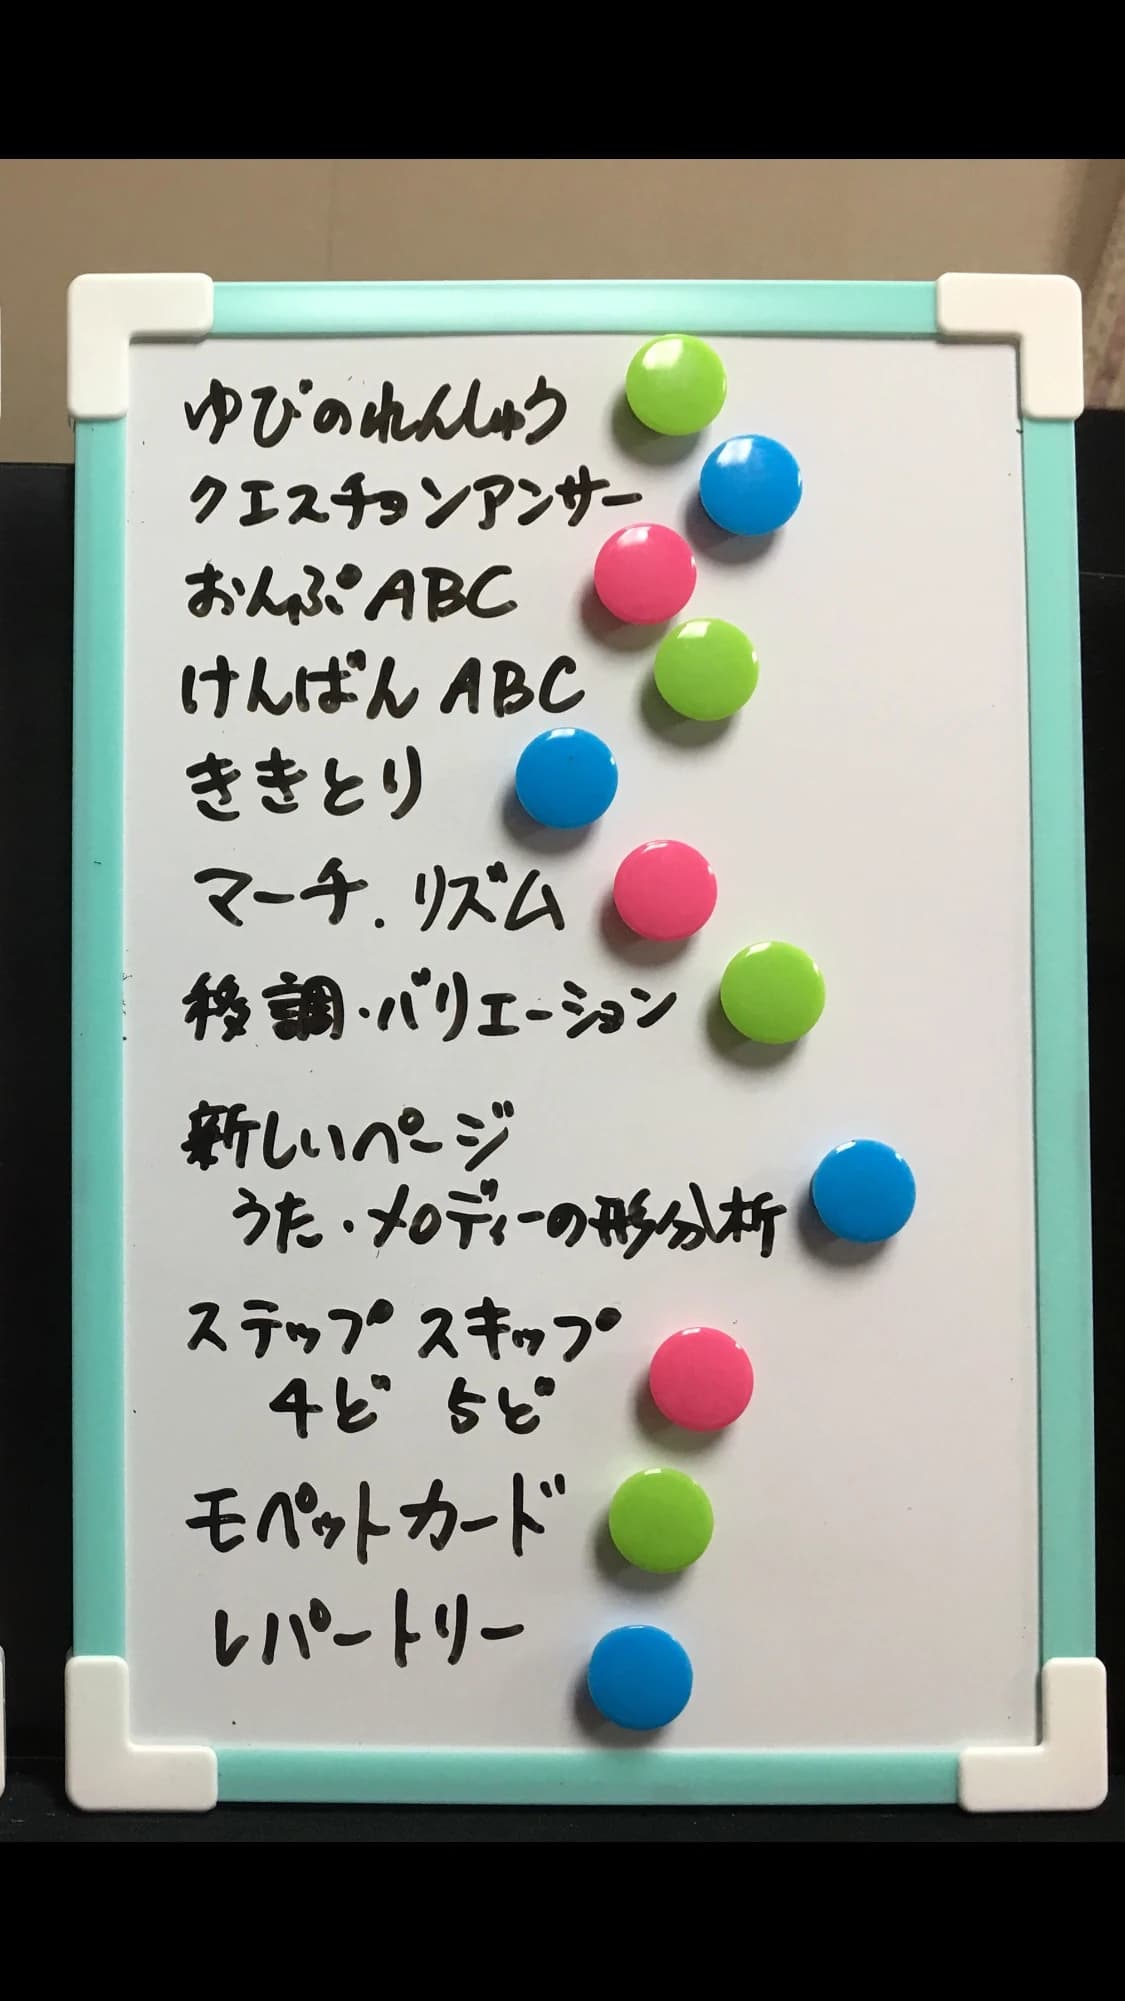 ゆびのれんしゅう
クエスチョンアンサー
おんぷABC
けんばんABC
ききとり
マーチ.リズム
移調・バリエーション
新しいページ
うた・メロディーの形分析
ステップ スキップ
4ど 5ど
モペットカード
レパートリー